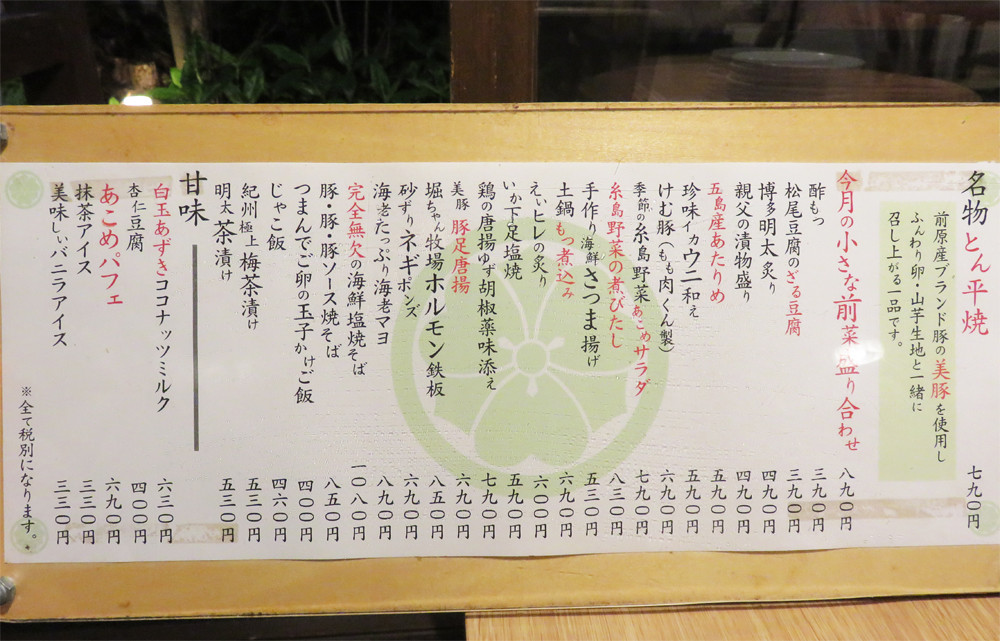 名物とん平焼 七九〇円
前原産ブランド豚の美豚を使用し
ふんわり卵・山芋生地と一緒に
召し上がる一品です。
今月の小さな前菜盛り合わせ 八九〇円
酢もつ 三九〇円
松尾豆腐のざる豆腐 三九〇円
博多明太炙り 四九〇円
親父の漬物盛り 四九〇円
五島産あたりめ 五九〇円
珍味イカウニ和え 五九〇円
けむ豚(もも肉くん製) 六九〇円
季節の糸島野菜あこめサラダ 七九〇円
糸島野菜の煮びたし 八三〇円
手作り海鮮さつま揚げ 五三〇円
土鍋もつ煮込み 六九〇円
えいヒレの炙り 六〇〇円
いか下足塩焼 五九〇円
鶏の唐揚ゆず胡椒薬味添え 七九〇円
美豚 豚足唐揚 六九〇円
堀ちゃん牧場ホルモン鉄板 八五〇円
砂ずりネギポンズ 六九〇円
海老たっぷり海老マヨ 八九〇円
完全無欠の海鮮塩焼そば 一〇八〇円
豚・豚ソース焼そば 八五〇円
つまんでご卵の玉子かけご飯 四〇〇円
じゃこ飯 四六〇円
紀州極上梅茶漬け 五三〇円
明太茶漬け 五三〇円
甘味
白玉あずきココナッツミルク 六三〇円
杏仁豆腐 四〇〇円
あこめパフェ 六九〇円
抹茶アイス 三三〇円
美味しぃバニラアイス 三三〇円
※全て税別になります。